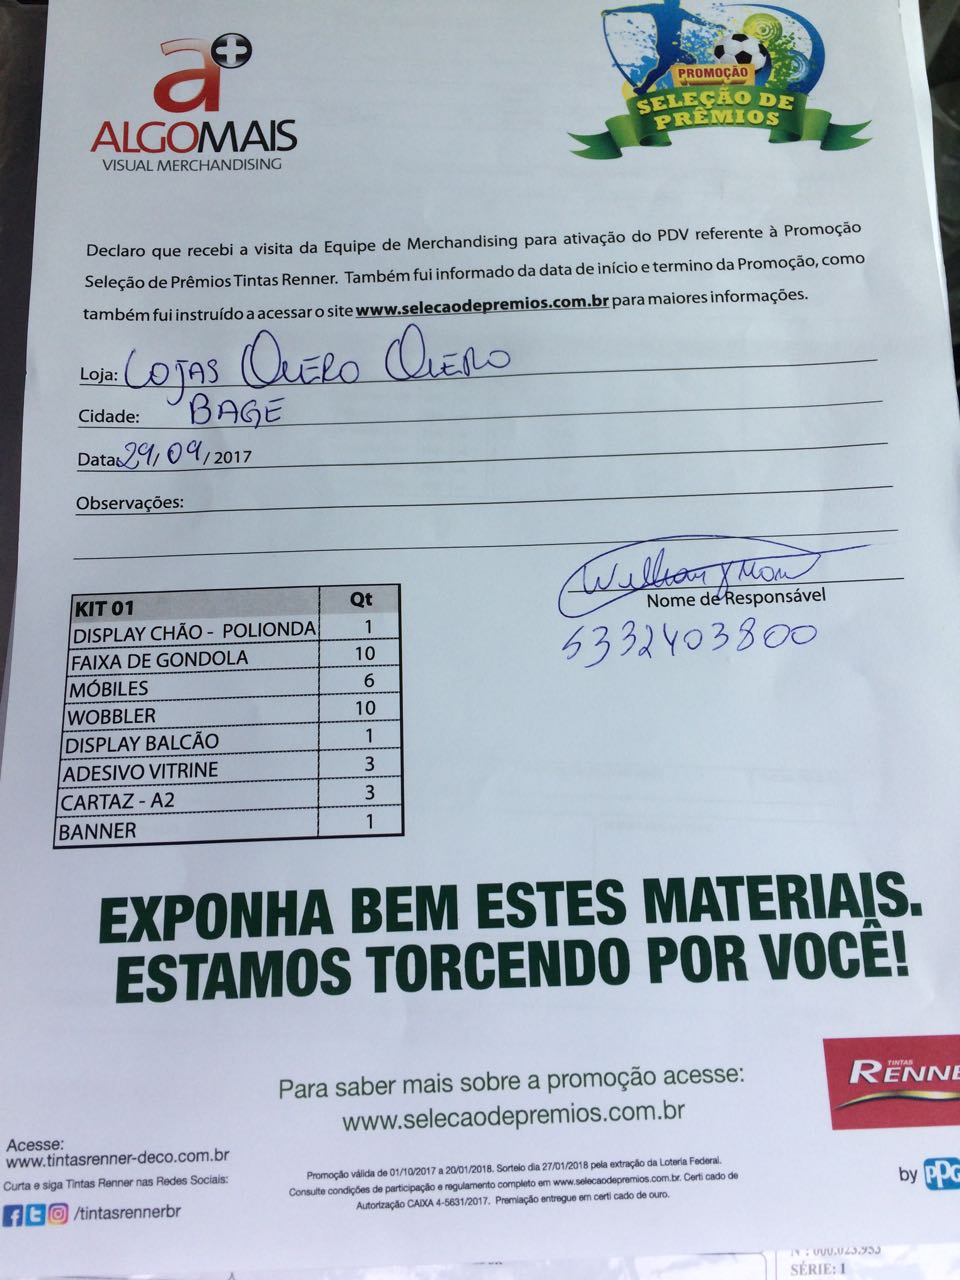 a+
ALGOMAIS
VISUAL MERCHANDISING
PROMOÇÃO
SELEÇÃO DE
PRÊMIOS
Declaro que recebi a visita da Equipe de Merchandising para ativação do PDV referente à Promoção
Seleção de Prêmios Tintas Renner. Também fui informado da data de início e termino da Promoção, como
também fui instruído a acessar o site www.selecaodepremios.com.br para maiores informações.
Loja: LOJAS QUERO QUERO
Cidade: BAGE
Data: 29/09/2017
Observações:
Nome de Responsável
5332403800
KIT 01 Qt
DISPLAY CHÃO - POLIONDA 1
FAIXA DE GONDOLA 10
MÓBILES 6
WOBBLER 10
DISPLAY BALCÃO 1
ADESIVO VITRINE 3
CARTAZ - A2 3
BANNER 1
EXPONHA BEM ESTES MATERIAIS.
ESTAMOS TORCENDO POR VOCÊ!
Para saber mais sobre a promoção acesse:
www.selecaodepremios.com.br
TINTAS
RENNE
Acesse:
www.tintasrenner-deco.com.br
Curta e siga Tintas Renner nas Redes Sociais:
/tintasrennerbr
Promoção válida de 01/10/2017 a 20/01/2018. Sorteio dia 27/01/2018 pela extração da Loteria Federal.
Consulte condições de participação e regulamento completo em www.selecaodepremios.com.br. Certi cado de
Autorização CAIXA 4-5631/2017. Premiação entregue em certi cado de ouro.
by PPG
Nº: 000.023.953
SÉRIE: 1